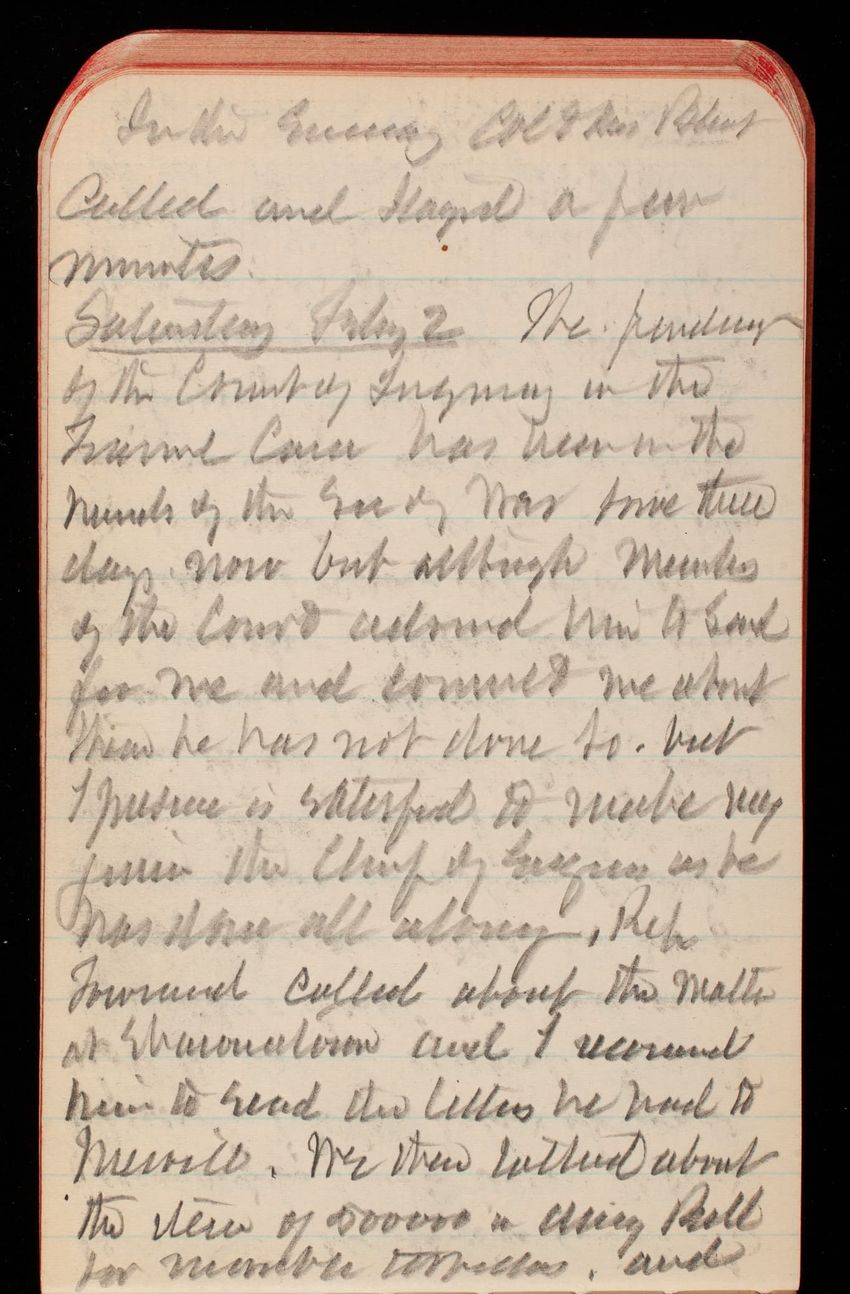 In the Evening Col & Mrs
Called and Stayed a few
minutes.
Saturday Feby 2 The finding
of the Court of Inquiry in the
Case has been in the
hands of the Secy of War some three
days now but although Members
of the Court advised him to Send
for me and consult me about
them he has not done so. but
I presume is satisfied to make my
junior the Chief of Engrs as he
has done all along, Rep
Townsend called about the matter
at and I recommend
him to send the letters he had to
Merrill. We then talked about
the item of 500000 in Army Bill
for torpedoes. and